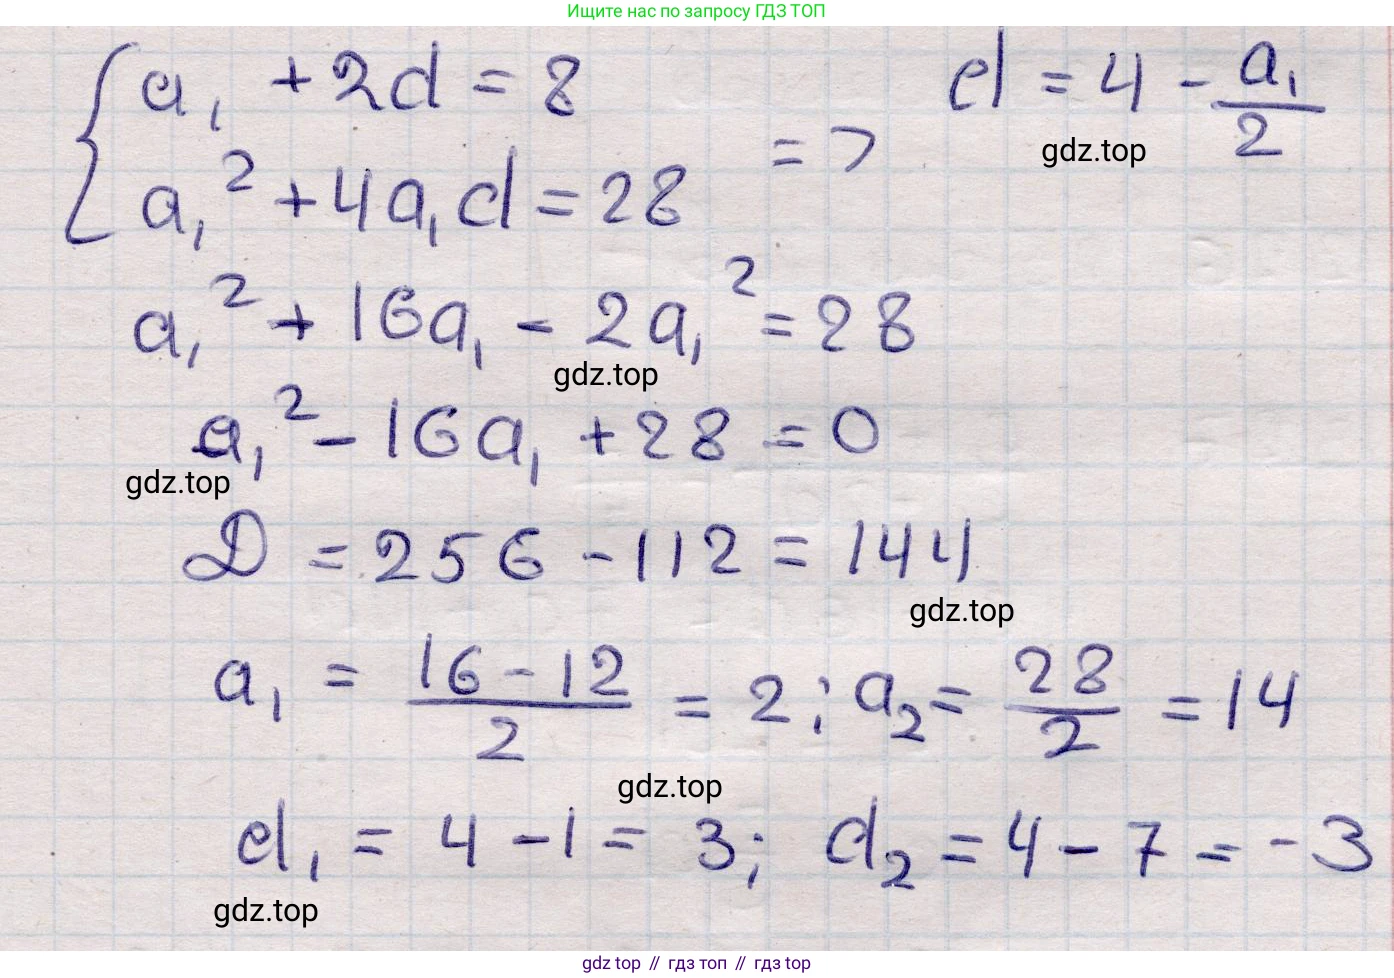 Ищите нас по запросу ГДЗ ТОП
a₁ + 2d = 8
d = 4 - a₁/2
gdz.top
a₁² + 4a₁d = 28 =>
a₁² + 16a₁ - 2a₁² = 28
gdz.top
a₁² - 16a₁ + 28 = 0
gdz.top
D = 256 - 112 = 144
gdz.top
a₁ = (16 - 12)/2 = 2; a₂ = 28/2 = 14
gdz.top
d₁ = 4 - 1 = 3; d₂ = 4 - 7 = -3
gdz.top
gdz top // гдз топ // гдз top